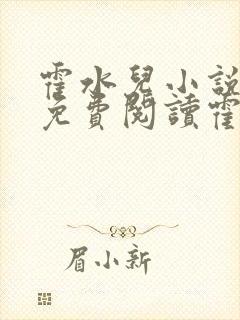 霍水兒小說
免費閱讀霍
眉小新